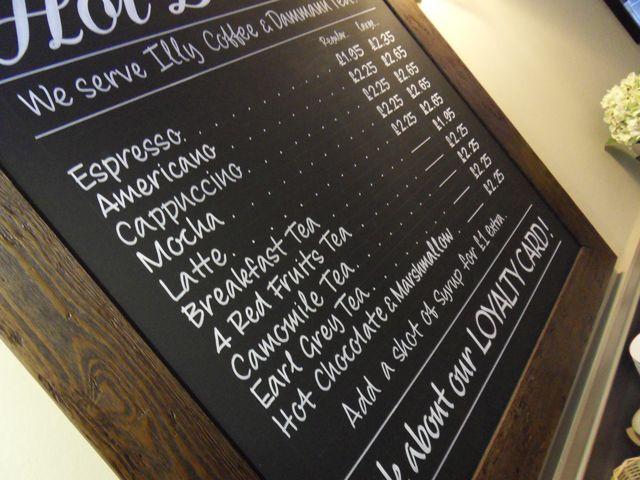 Hot
We serve Illy Coffee & Dammann Teas!
Regular Large
Espresso . . . . . . . £1.95 £2.35
Americano . . . . . . . £2.25 £2.65
Cappuccino . . . . . . . £2.25 £2.65
Mocha . . . . . . . £2.25 £2.65
Latte . . . . . . . £2.25 £2.65
Breakfast Tea . . . . . . . — £1.95
4 Red Fruits Tea . . . . . . . — £2.25
Camomile Tea . . . . . . . — £2.25
Earl Grey Tea . . . . . . . — £2.25
Hot Chocolate & Marshmallow — £2.25
Add a shot of Syrup for £1 extra.
about our LOYALTY CARD!